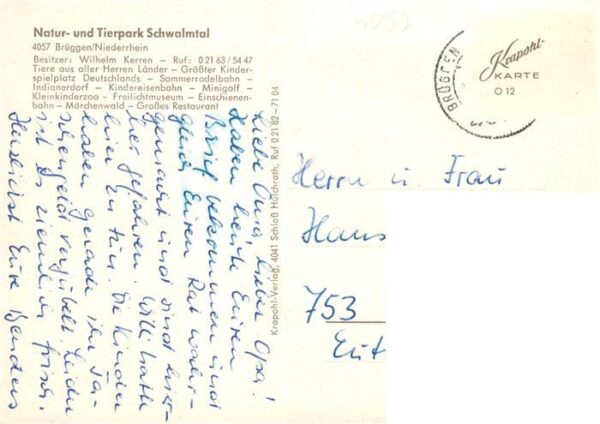 Natur- und Tierpark Schwalmtal
4057 Brüggen/Niederrhein
Besitzer: Wilhelm Kerren – Ruf: 0 21 63 / 54 47
Tiere aus aller Herren Länder – Größter Kinder-
spielplatz Deutschlands – Sommerrodelbahn –
Indianerdorf – Kindereisenbahn – Minigolf –
Kleinkinderzoo – Freilichtmuseum – Einschienen-
bahn – Märchenwald – Großes Restaurant
Liebe Oma, lieber Opa!
Haben heute Euren
Brief bekommen und
gleich Euren Rat wahr-
gemacht und sind hier-
her gefahren. Willi hatte
hier zu tun. Die Kinder
haben gerade ihr Ta-
schengeld verjubelt. Leider
ist es ziemlich frisch.
Herzlichst Eure
Krapohl-Verlag, 4041 Schloß Hülchrath, Ruf 0 21 82 – 71 04
BRÜGGEN
Krapohl-
KARTE
O 12
Herrn u. Frau
Hans
753
Eut